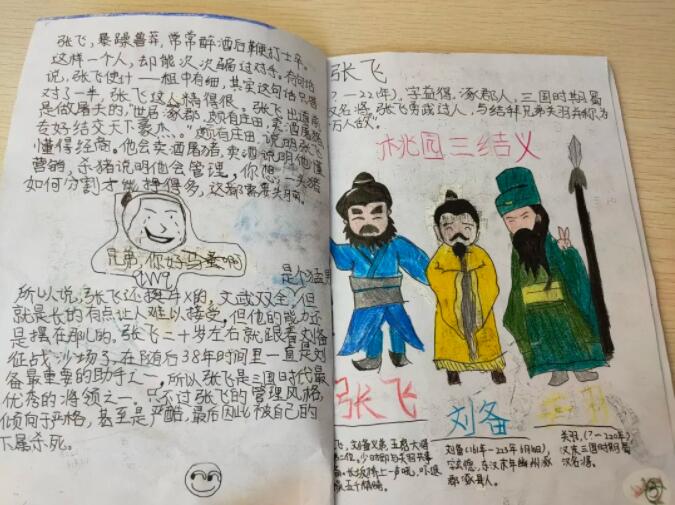 张飞，暴躁鲁莽，常常醉酒后鞭打士卒。
这样一个人，却能次次骗过对手。有句话
说，张飞使计——粗中有细，其实这句话只猜
对了一半，张飞这人精得很。张飞出道前
是做屠夫的，"世居涿郡，颇有庄田，卖酒屠猪
专好结交天下豪杰、。"颇有庄田，说明张飞
懂得经商。他会卖酒屠猪，卖酒说明他懂
营销，杀猪说明他会管理，你想，一头猪
如何分割才能挣得多，这都需要头脑。
兄弟，你好马蚤啊
是个猛男
所以说，张飞还挺牛X的，文武双全，但
就是长的有点让人难以接受。但他的能力还
是摆在那儿的。张飞二十岁左右就跟着刘备
征战沙场了，在随后38年时间里一直是刘
备最重要的助手之一。所以张飞是三国时代最
优秀的将领之一。只不过张飞的管理风格，
倾向于严格，甚至是严酷，最后因此被自己的
下属杀死。
张飞
(?—221年)，字益得，涿郡人，三国时期蜀
汉名将，张飞勇武过人，与结拜兄弟关羽并称为
万人敌"。
桃园三结义
张飞
刘备
关羽
飞，刘备义弟，五虎大将
第二位，少时即与关羽共事
刘备(161年—223年6月10日)，
字玄德，东汉末年幽州涿
郡涿县人。
关羽，(?—220年)
汉末三国时期蜀
汉名将。